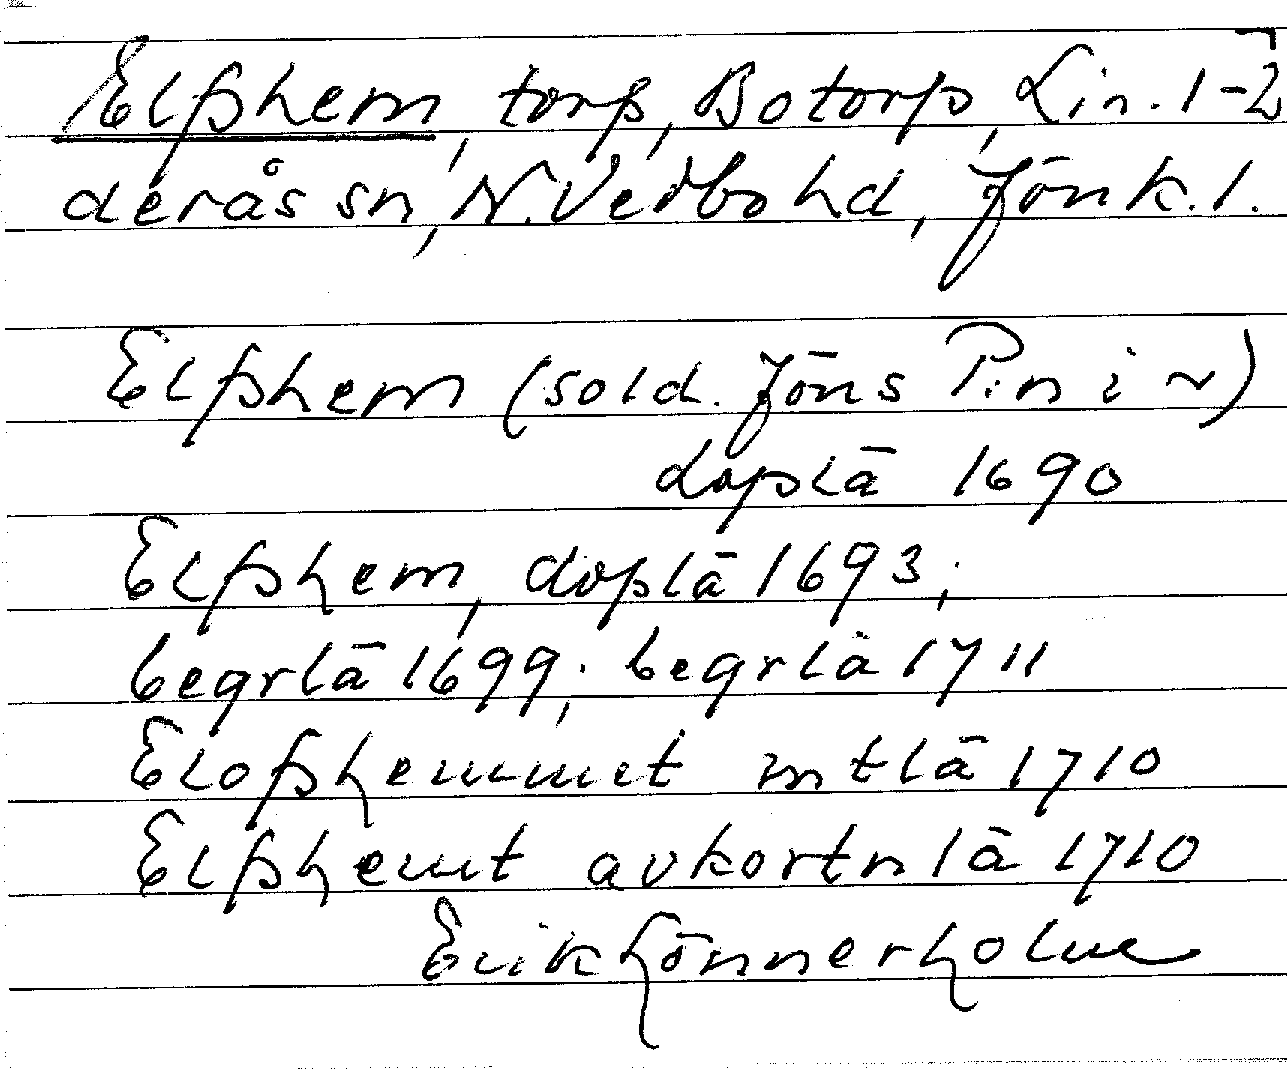 Elphem, torp, Botorp, Lin. 1-2
derås sn, N. Vedbo hd, Jönk. l.
Elphem (sold. Jöns P:n i ~)
doplä 1690
Elphem, doplä 1693;
begrlä 1699; begrlä 1711
Elophemmet mtlä 1710
Elphemt avkortnlä 1710
Erik Hönnerholm